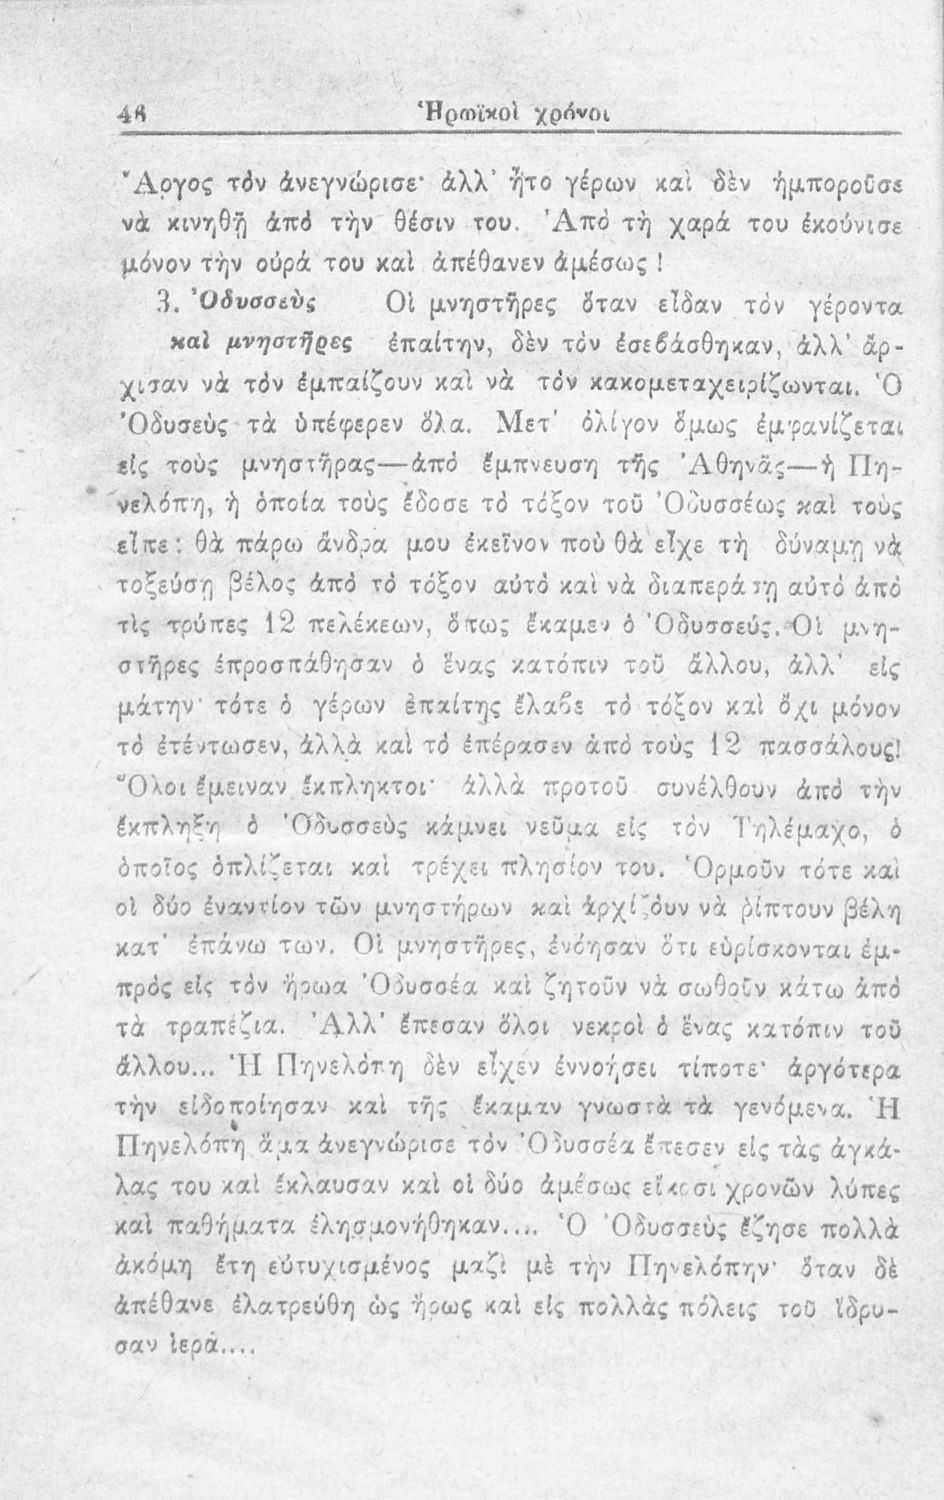 46 Ἡρωϊκοὶ χρόνοι
Ἄργος τὸν ἀνεγνώρισε· ἀλλ’ ἦτο γέρων καὶ δὲν ἠμποροῦσε
νὰ κινηθῇ ἀπὸ τὴν θέσιν του. Ἀπὸ τὴ χαρά του ἐκούνισε
μόνον τὴν οὐρά του καὶ ἀπέθανεν ἀμέσως!
3. Ὀδυσσεὺς Οἱ μνηστῆρες ὅταν εἶδαν τὸν γέροντα
καὶ μνηστῆρες ἐπαίτην, δὲν τὸν ἐσεβάσθηκαν, ἀλλ’ ἄρ-
χισαν νὰ τὸν ἐμπαίζουν καὶ νὰ τὸν κακομεταχειρίζωνται. Ὁ
Ὀδυσεὺς τὰ ὑπέφερεν ὅλα. Μετ’ ὀλίγον ὅμως ἐμφανίζεται
εἰς τοὺς μνηστῆρας—ἀπὸ ἔμπνευση τῆς Ἀθηνᾶς—ἡ Πη-
νελόπη, ἡ ὁποία τοὺς ἔδοσε τὸ τόξον τοῦ Ὀδυσσέως καὶ τοὺς
εἶπε: θὰ πάρω ἄνδρα μου ἐκεῖνον ποὺ θὰ εἶχε τὴ δύναμη νὰ
τοξεύσῃ βέλος ἀπὸ τὸ τόξον αὐτὸ καὶ νὰ διαπεράσῃ αὐτὸ ἀπὸ
τὶς τρύπες 12 πελέκεων, ὅπως ἔκαμεν ὁ Ὀδυσσεύς. Οἱ μνη-
στῆρες ἐπροσπάθησαν ὁ ἕνας κατόπιν τοῦ ἄλλου, ἀλλ’ εἰς
μάτην· τότε ὁ γέρων ἐπαίτης ἔλαβε τὸ τόξον καὶ ὄχι μόνον
τὸ ἐτέντωσεν, ἀλλὰ καὶ τὸ ἐπέρασεν ἀπὸ τοὺς 12 πασσάλους!
Ὅλοι ἔμειναν ἔκπληκτοι· ἀλλὰ προτοῦ συνέλθουν ἀπὸ τὴν
ἔκπληξη ὁ Ὀδυσσεὺς κάμνει νεῦμα εἰς τὸν Τηλέμαχο, ὁ
ὁποῖος ὁπλίζεται καὶ τρέχει πλησίον του. Ὁρμοῦν τότε καὶ
οἱ δύο ἐναντίον τῶν μνηστήρων καὶ ἀρχίζουν νὰ ρίπτουν βέλη
κατ’ ἐπάνω των. Οἱ μνηστῆρες, ἐνόησαν ὅτι εὑρίσκονται ἐμ-
πρὸς εἰς τὸν ἥρωα Ὀδυσσέα καὶ ζητοῦν νὰ σωθοῦν κάτω ἀπὸ
τὰ τραπέζια. Ἀλλ’ ἔπεσαν ὅλοι νεκροὶ ὁ ἕνας κατόπιν τοῦ
ἄλλου... Ἡ Πηνελόπη δὲν εἶχεν ἐννοήσει τίποτε· ἀργότερα
τὴν εἰδοποίησαν καὶ τῆς ἔκαμαν γνωστὰ τὰ γενόμενα. Ἡ
Πηνελόπη ἅμα ἀνεγνώρισε τὸν Ὀδυσσέα ἔπεσεν εἰς τὰς ἀγκά-
λας του καὶ ἔκλαυσαν καὶ οἱ δύο ἀμέσως εἴκοσι χρονῶν λύπες
καὶ παθήματα ἐλησμονήθηκαν.... Ὁ Ὀδυσσεὺς ἔζησε πολλὰ
ἀκόμη ἔτη εὐτυχισμένος μαζὶ μὲ τὴν Πηνελόπην· ὅταν δὲ
ἀπέθανε ἐλατρεύθη ὡς ἥρως καὶ εἰς πολλὰς πόλεις τοῦ ἵδρυ-
σαν ἱερά....